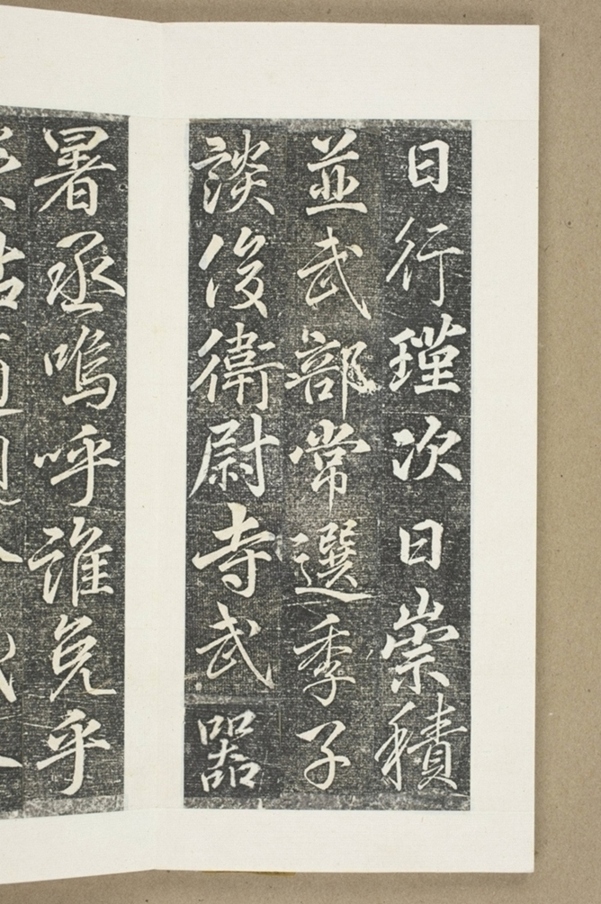 日行瑾次日崇積
並武部常選季子
談後衛尉寺武器
署丞嗚呼誰免乎